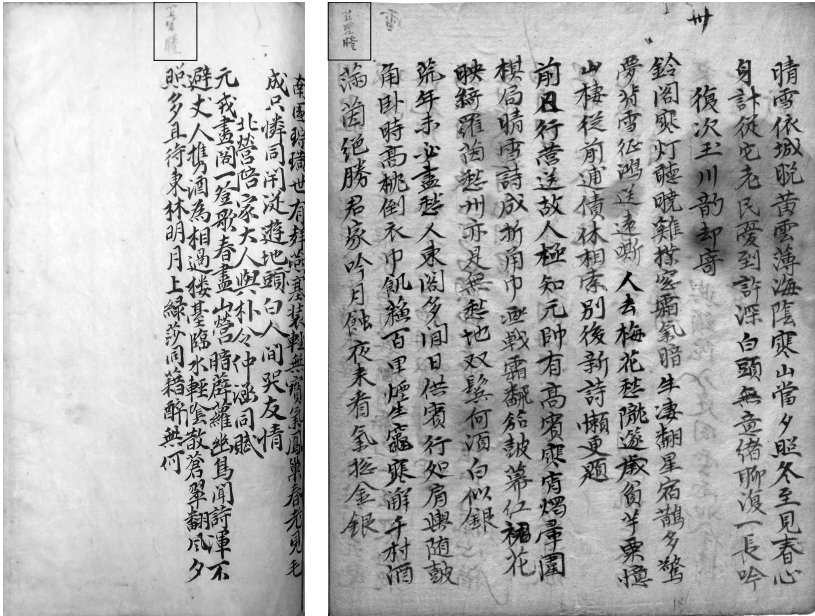 卅
晴雪依城晩黄雲薄海陰寒山當夕照冬至見春心
身計從它老民憂到許深白頭無意緒聊復一長吟
復次玉川韵却寄
鈴阁寒灯聽曉雞撲窓霜氣暗生凄翻星宿鵲多驚
夢背雪征鴻送遠嘶人去梅花愁隴遂歲貧芋栗憶
山棲從前逋債休相索別後新詩懶更題
前日行营送故人極知元帥有高賓寒宵燭帚圍
棋局晴雪詩成折角巾画戟霜翻皷幕仁裙花
映綺羅茵愁州亦是無愁地双鬂何湏白似銀
荒年未必盡愁人東阁多閒日供賓行如肩輿随皷
角卧時高枕倒衣巾飢百里煙生竈寒解千村酒
滿茵絕勝君家吟月蝕夜来看氣捴金銀
南國世有燕基装輕無寶氣鳳巢春老見毛
成只憐同閈泛遊地頭白人間哭友情
北營陪家大人與朴令仲涵同賦
元戎畫閣一笙歌春盡山營暗薜蘿幽鳥聞詩渾不
避丈人携酒為相過楼基臨水輕陰散蒼翠翻風夕
照多直待東林明月上緑莎同籍醉無何